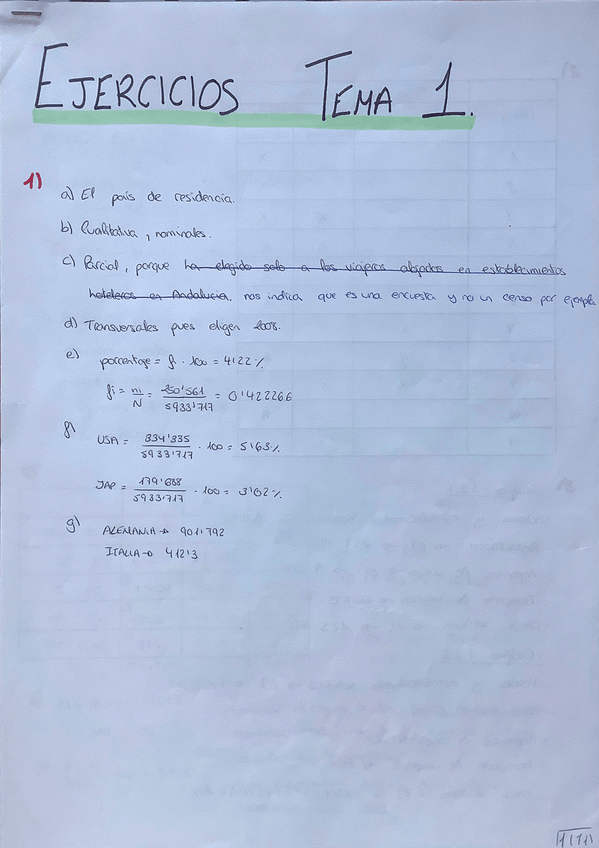 EJERCICIOS TEMA 1.
1)
a) El país de residencia.
b) Cualitativa, nominales.
c) Parcial, porque ha elegido solo a los viajeros alojados en establecimientos
hoteleros en Andalucía. nos indica que es una encuesta y no un censo por ejemplo
d) Transversales pues eligen 2008.
e) porcentaje = fi · 100 = 4'22%
fi = ni/N = 250'561/5933'717 = 0'422266
f) USA = 334'335/5933'717 · 100 = 5'63%
JAP = 179'688/5933'717 · 100 = 3'02%
g) ALEMANIA → 901'792
ITALIA → 412'3